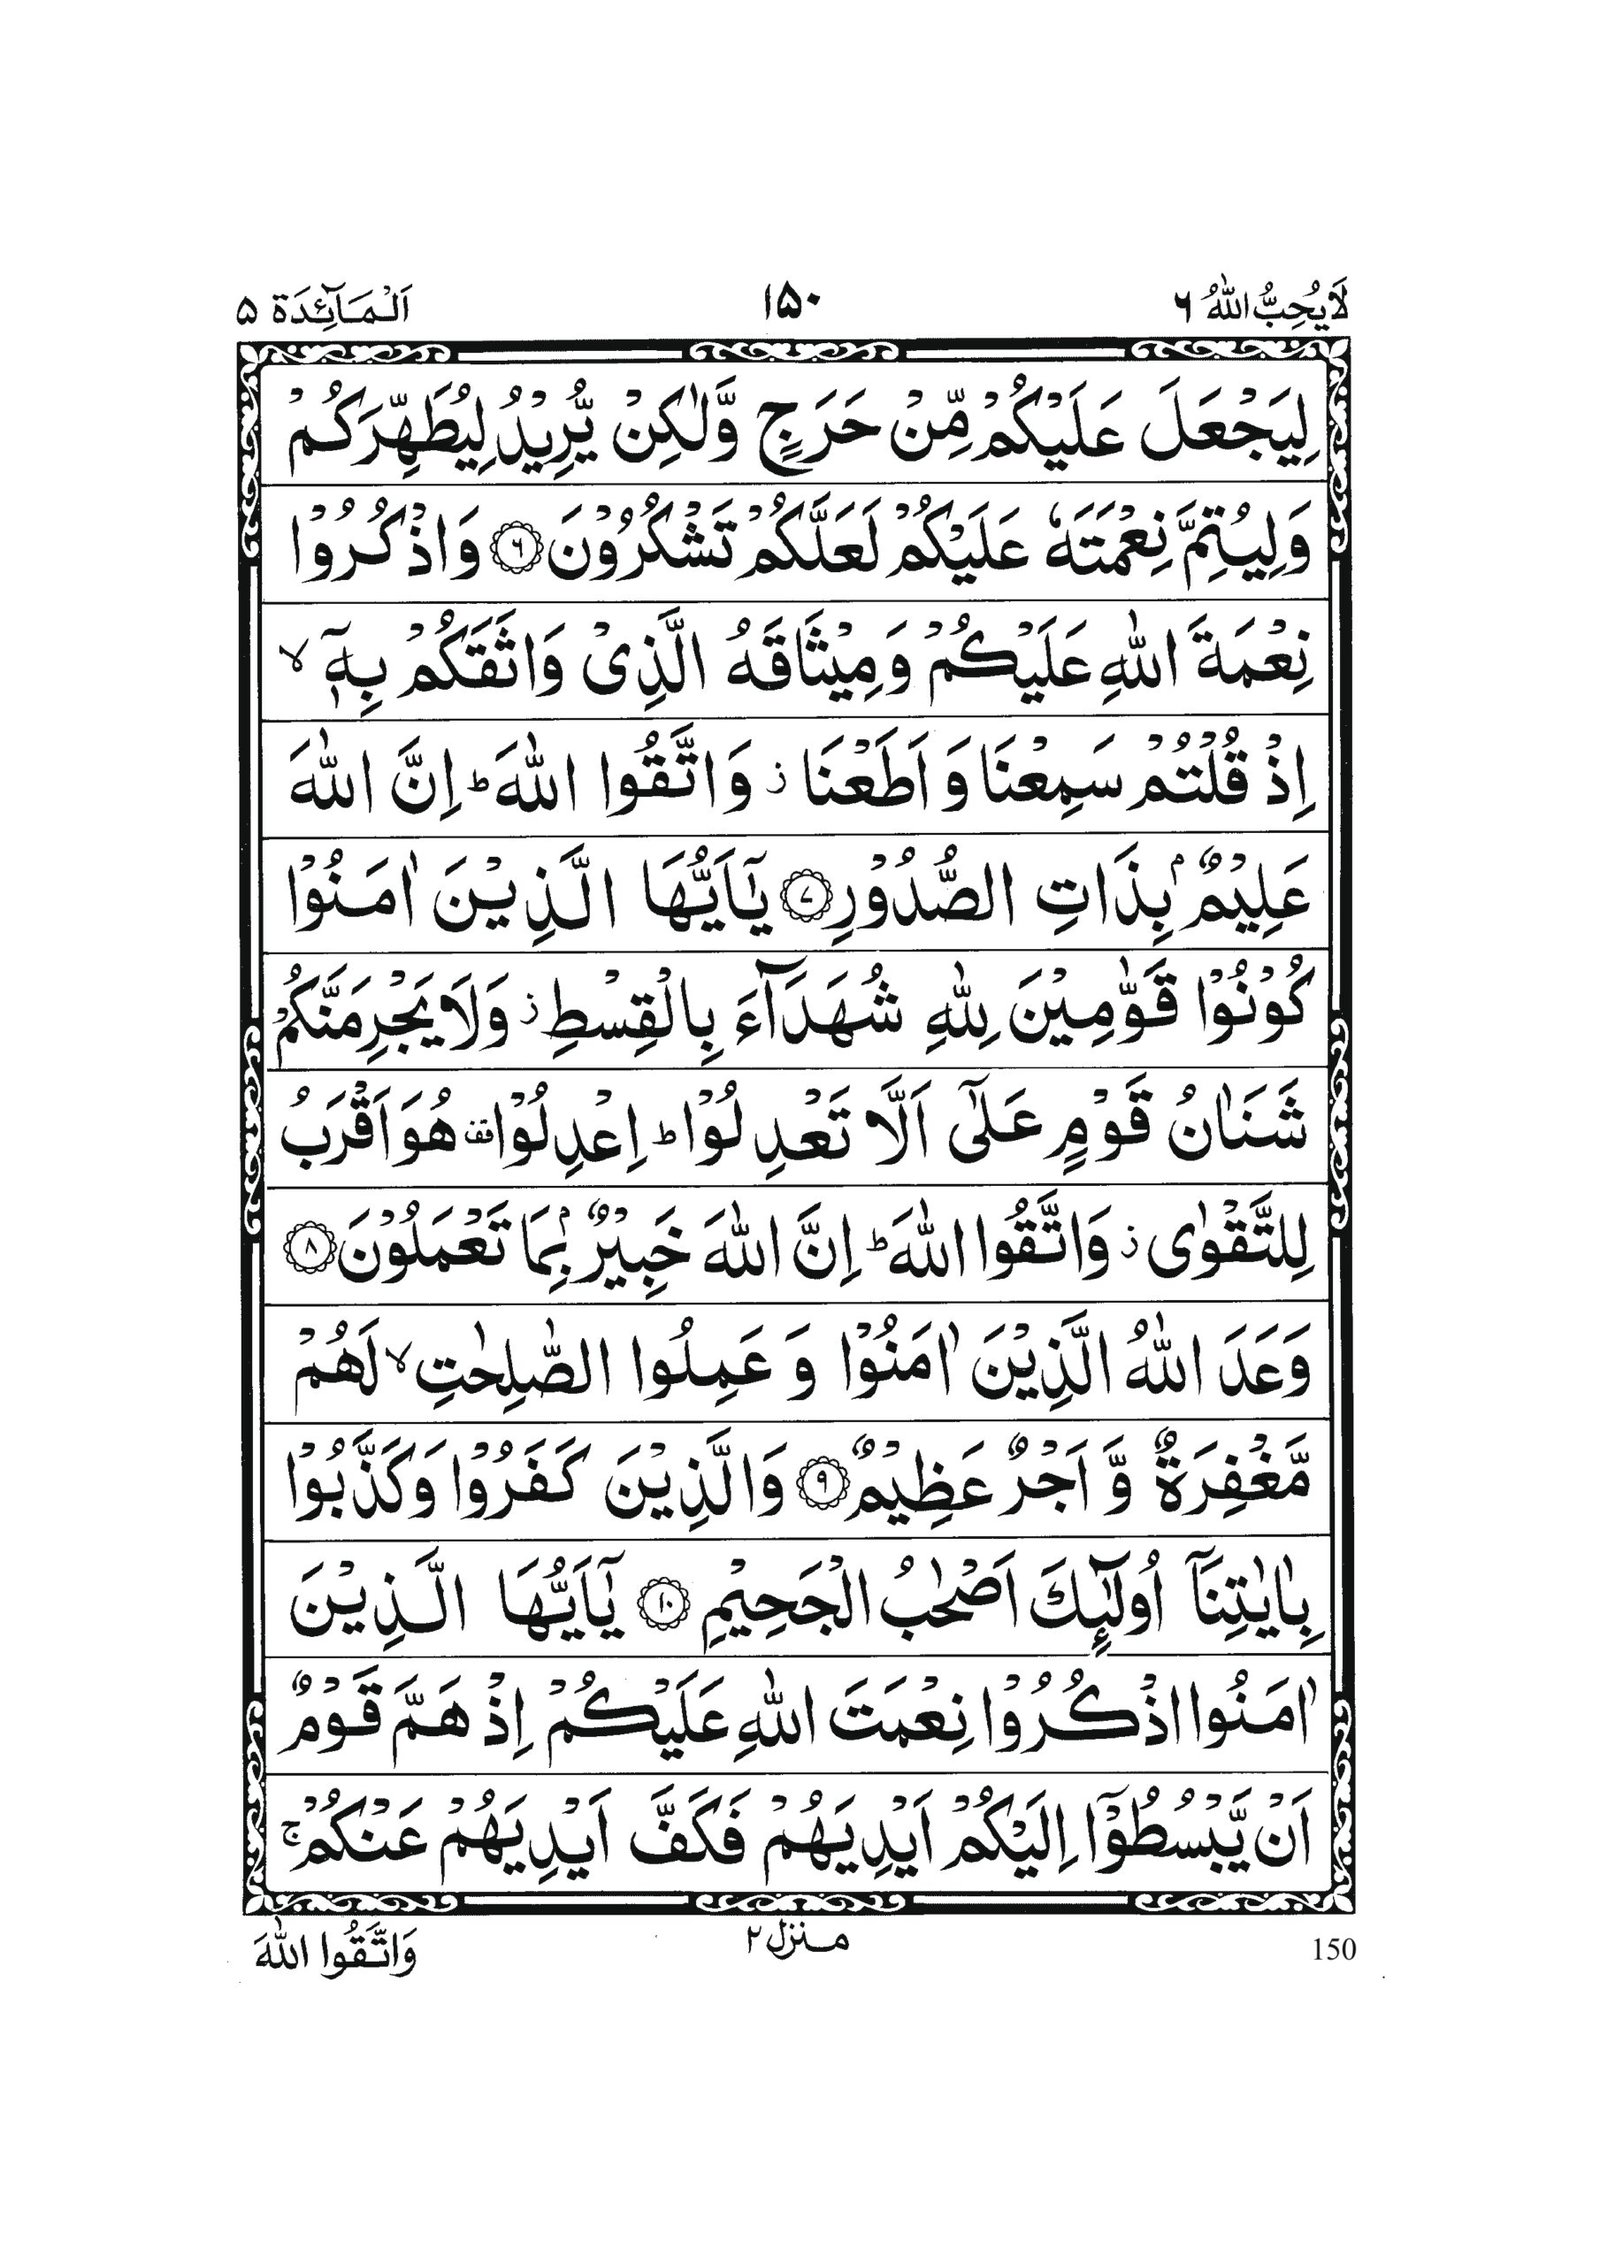 لَا يُحِبُّ اللّٰهُ ٦ ١٥٠ اَلْمَآئِدَة ۵
لِيَجْعَلَ عَلَيْكُمْ مِّنْ حَرَجٍ وَّلٰكِنْ يُّرِيْدُ لِيُطَهِّرَكُمْ
وَلِيُتِمَّ نِعْمَتَهٗ عَلَيْكُمْ لَعَلَّكُمْ تَشْكُرُوْنَ ۝٦ وَاذْكُرُوْا
نِعْمَةَ اللّٰهِ عَلَيْكُمْ وَمِيْثَاقَهُ الَّذِىْ وَاثَقَكُمْ بِهٖٓ ۙ
اِذْ قُلْتُمْ سَمِعْنَا وَ اَطَعْنَا ۡ وَاتَّقُوا اللّٰهَ ؕ اِنَّ اللّٰهَ
عَلِيْمٌۢ بِذَاتِ الصُّدُوْرِ ۝٧ يٰٓاَيُّهَا الَّذِيْنَ اٰمَنُوْا
كُوْنُوْا قَوّٰمِيْنَ لِلّٰهِ شُهَدَآءَ بِالْقِسْطِ ز وَلَا يَجْرِمَنَّكُمْ
شَنَاٰنُ قَوْمٍ عَلٰٓى اَلَّا تَعْدِلُوْا ؕ اِعْدِلُوْا قف هُوَ اَقْرَبُ
لِلتَّقْوٰى ز وَاتَّقُوا اللّٰهَ ؕ اِنَّ اللّٰهَ خَبِيْرٌۢ بِمَا تَعْمَلُوْنَ ۝٨
وَعَدَ اللّٰهُ الَّذِيْنَ اٰمَنُوْا وَ عَمِلُوا الصّٰلِحٰتِ ۙ لَهُمْ
مَّغْفِرَةٌ وَّ اَجْرٌ عَظِيْمٌ ۝٩ وَالَّذِيْنَ كَفَرُوْا وَكَذَّبُوْا
بِاٰيٰتِنَآ اُولٰٓئِكَ اَصْحٰبُ الْجَحِيْمِ ۝١٠ يٰٓاَيُّهَا الَّذِيْنَ
اٰمَنُوا اذْكُرُوْا نِعْمَتَ اللّٰهِ عَلَيْكُمْ اِذْ هَمَّ قَوْمٌ
اَنْ يَّبْسُطُوْٓا اِلَيْكُمْ اَيْدِيَهُمْ فَكَفَّ اَيْدِيَهُمْ عَنْكُمْ ۚ
150 منزل ٢ وَاتَّقُوا اللّٰهَ